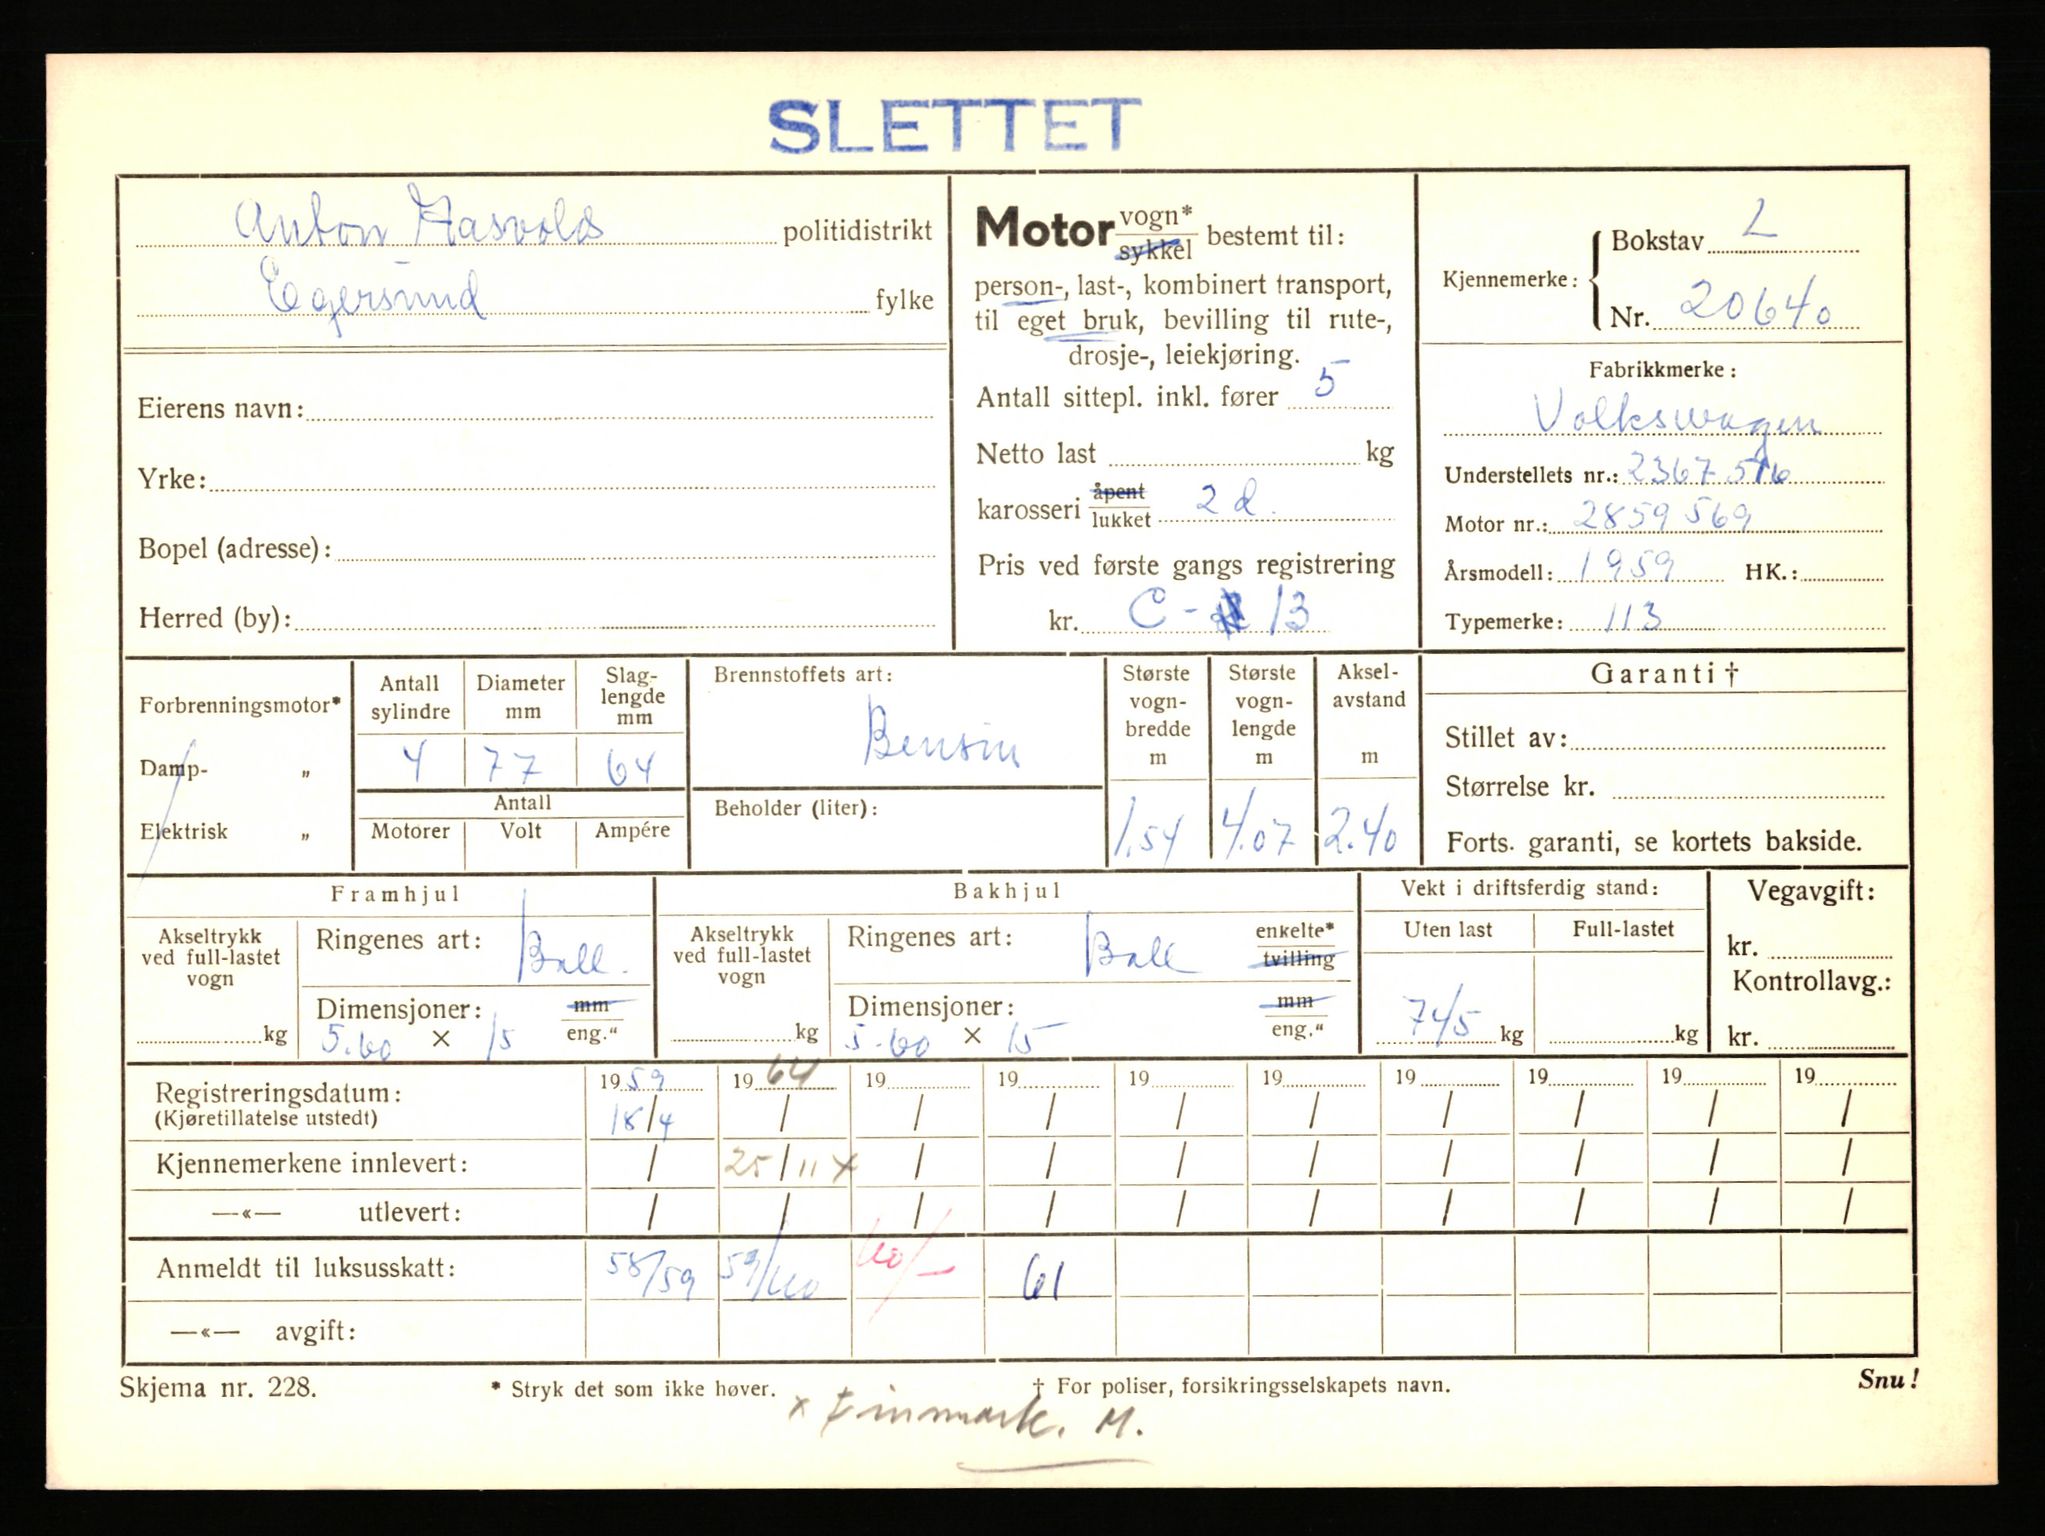 SLETTET
Anton politidistrikt
Egersund fylke
Eierens navn:
Yrke:
Bopel (adresse):
Herred (by):
Motor vogn* sykkel bestemt til:
person-, last-, kombinert transport,
til eget bruk, bevilling til rute-,
drosje-, leiekjøring.
Antall sittepl. inkl. fører 5
Netto last kg
karosseri åpent lukket 2 d.
Pris ved første gangs registrering
kr. C - 13
Kjennemerke: Bokstav L
Nr. 20640
Fabrikkmerke:
Volkswagen
Understellets nr.: 2367516
Motor nr.: 2859569
Årsmodell: 1959 HK.:
Typemerke: 113
Forbrenningsmotor*
Damp- „
Elektrisk „
Antall sylindre
Diameter mm
Slag-lengde mm
4 77 64
Antall
Motorer Volt Ampére
Brennstoffets art:
Bensin
Beholder (liter):
Største vogn-bredde m
Største vogn-lengde m
Aksel-avstand m
1.54 4.07 2.40
Garanti †
Stillet av:
Størrelse kr.
Forts. garanti, se kortets bakside.
Framhjul
Akseltrykk ved full-lastet vogn
kg
Ringenes art: Ball.
Dimensjoner: mm eng."
5.60 × 15
Bakhjul
Akseltrykk ved full-lastet vogn
kg
Ringenes art: Ball enkelte* tvilling
Dimensjoner: mm eng."
5.60 × 15
Vekt i driftsferdig stand:
Uten last Full-lastet
745 kg kg
Vegavgift:
kr.
Kontrollavg.:
kr.
Registreringsdatum: 1959 1964 19 19 19 19 19 19 19 19
(Kjøretillatelse utstedt) 18/4 / / / / / / / / /
Kjennemerkene innlevert: / 25/11 x / / / / / / / /
—«— utlevert: / / / / / / / / / /
Anmeldt til luksusskatt: 58/59 59/60 60/- 61
—«— avgift:
Skjema nr. 228. * Stryk det som ikke høver. † For poliser, forsikringsselskapets navn. Snu!
x Finnmark. M.